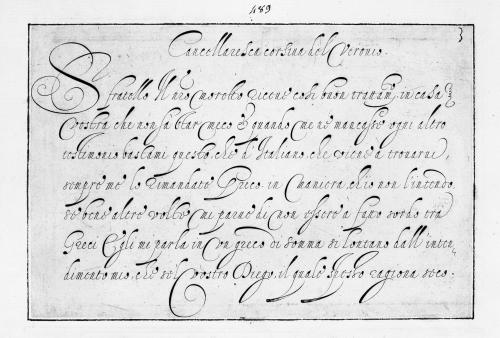 489
3
Cancellaresca corsiva del Cresci.
S. fratello. Il mio moretto riceve così buon trattam.to in casa
Vostra, che non sa star meco. Et quando me ne mancasse ogni altro
testimonio, bastami questo, che d'Italiano, che viene a trovarvi,
sempre me lo rimandate Greco in maniera, ch'io non l'intendo,
se bene altre volte mi parve di non essere a fatto sordo tra
Greci. Egli mi parla in un greco di somma sì lontano dall'inten-
dimento mio, che sol Vostro Diego, il quale spesso ragiona seco.